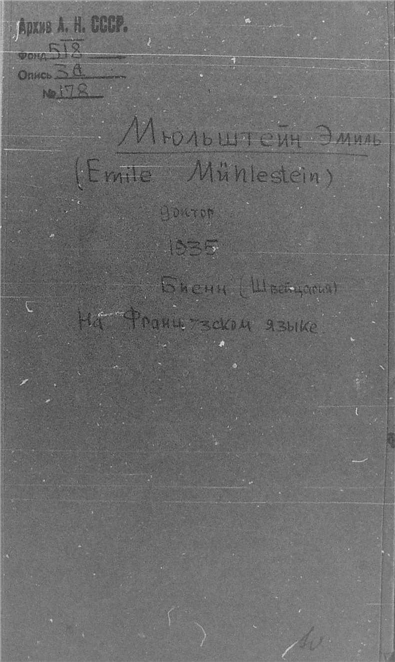 Архив А. Н. СССР.
Фонд 518
Опись 3а
№ 178
Мюльштейн Эмиль
(Emile Mühlestein)
доктор
1935
Биенн (Швейцария)
На Франц-зском языке.